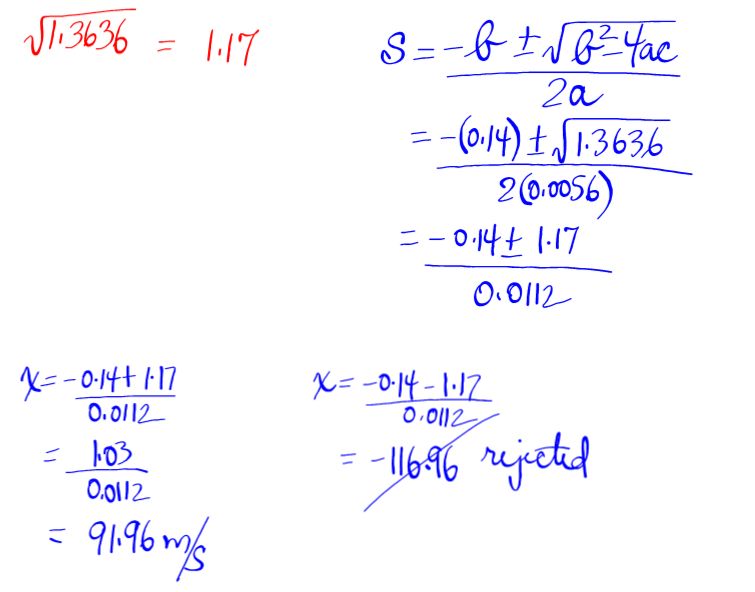 √1.3636 = 1.17
S = -b ± √b²-4ac
2a
= -(0.14) ± √1.3636
2(0.0056)
= -0.14 ± 1.17
0.0112
x = -0.14 + 1.17
0.0112
= 1.03
0.0112
= 91.96 m/s
x = -0.14 - 1.17
0.0112
= -116.96 rejected